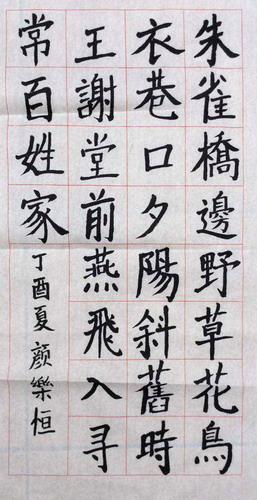 朱雀橋邊野草花鳥
衣巷口夕陽斜舊時
王謝堂前燕飛入寻
常百姓家
丁酉夏顔樂恒